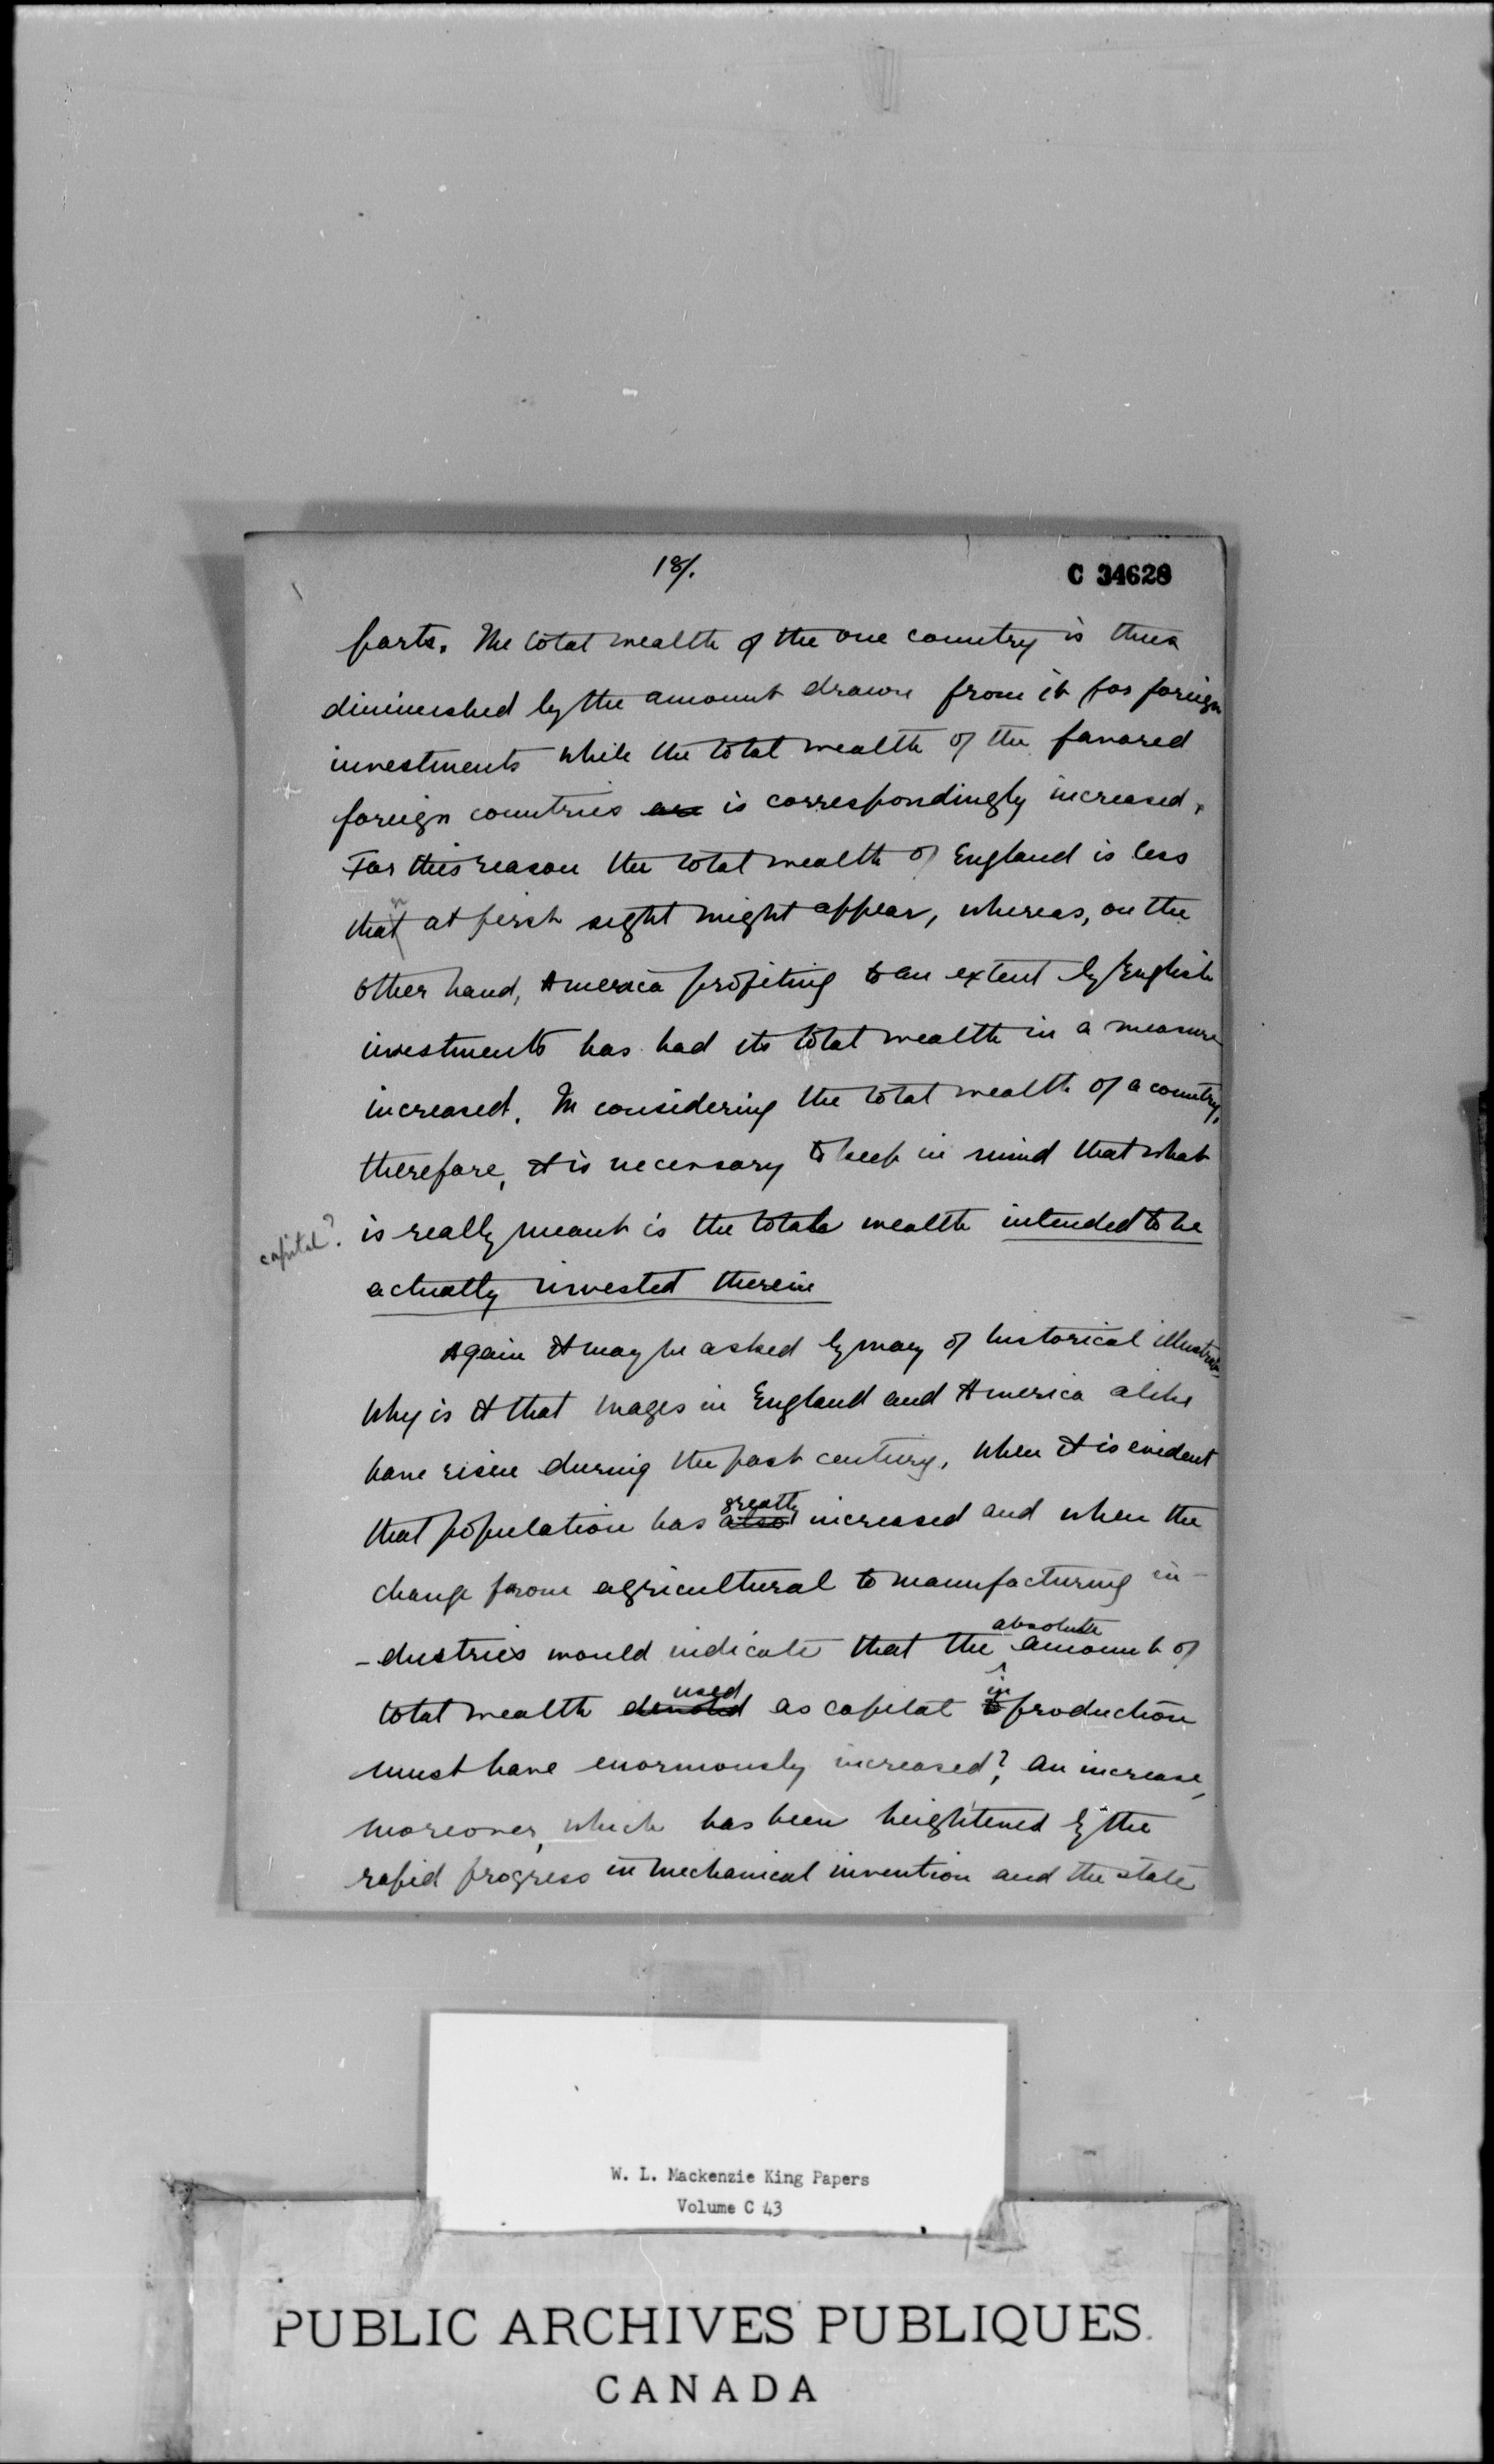 18/.
C 34628
parts. The total wealth of the one country is thus
diminished by the amount drawn from it for foreign
investments while the total wealth of the favored
foreign countries are is correspondingly increased.
For this reason the total wealth of England is less
n
that at first sight might appear, whereas, on the
other hand, America profiting to an extent by English
investments has had its total wealth in a measure
increased. In considering the total wealth of a country,
therefore, it is necessary to keep in mind that what
capital?
is really meant is the total wealth intended to be
actually invested therein
Again it may be asked by way of historical illustration
Why is it that wages in England and America alike
have risen during the past century, when it is evident
greatly
that population has also increased and when the
change from agricultural to manufacturing in-
absolute
-dustries would indicate that the amount of
used in
total wealth devoted as capital to production
must have enormously increased? An increase,
moreover, which has been heightened by the
rapid progress in mechanical invention and the state
W. L. Mackenzie King Papers
Volume C 43
PUBLIC ARCHIVES PUBLIQUES
CANADA